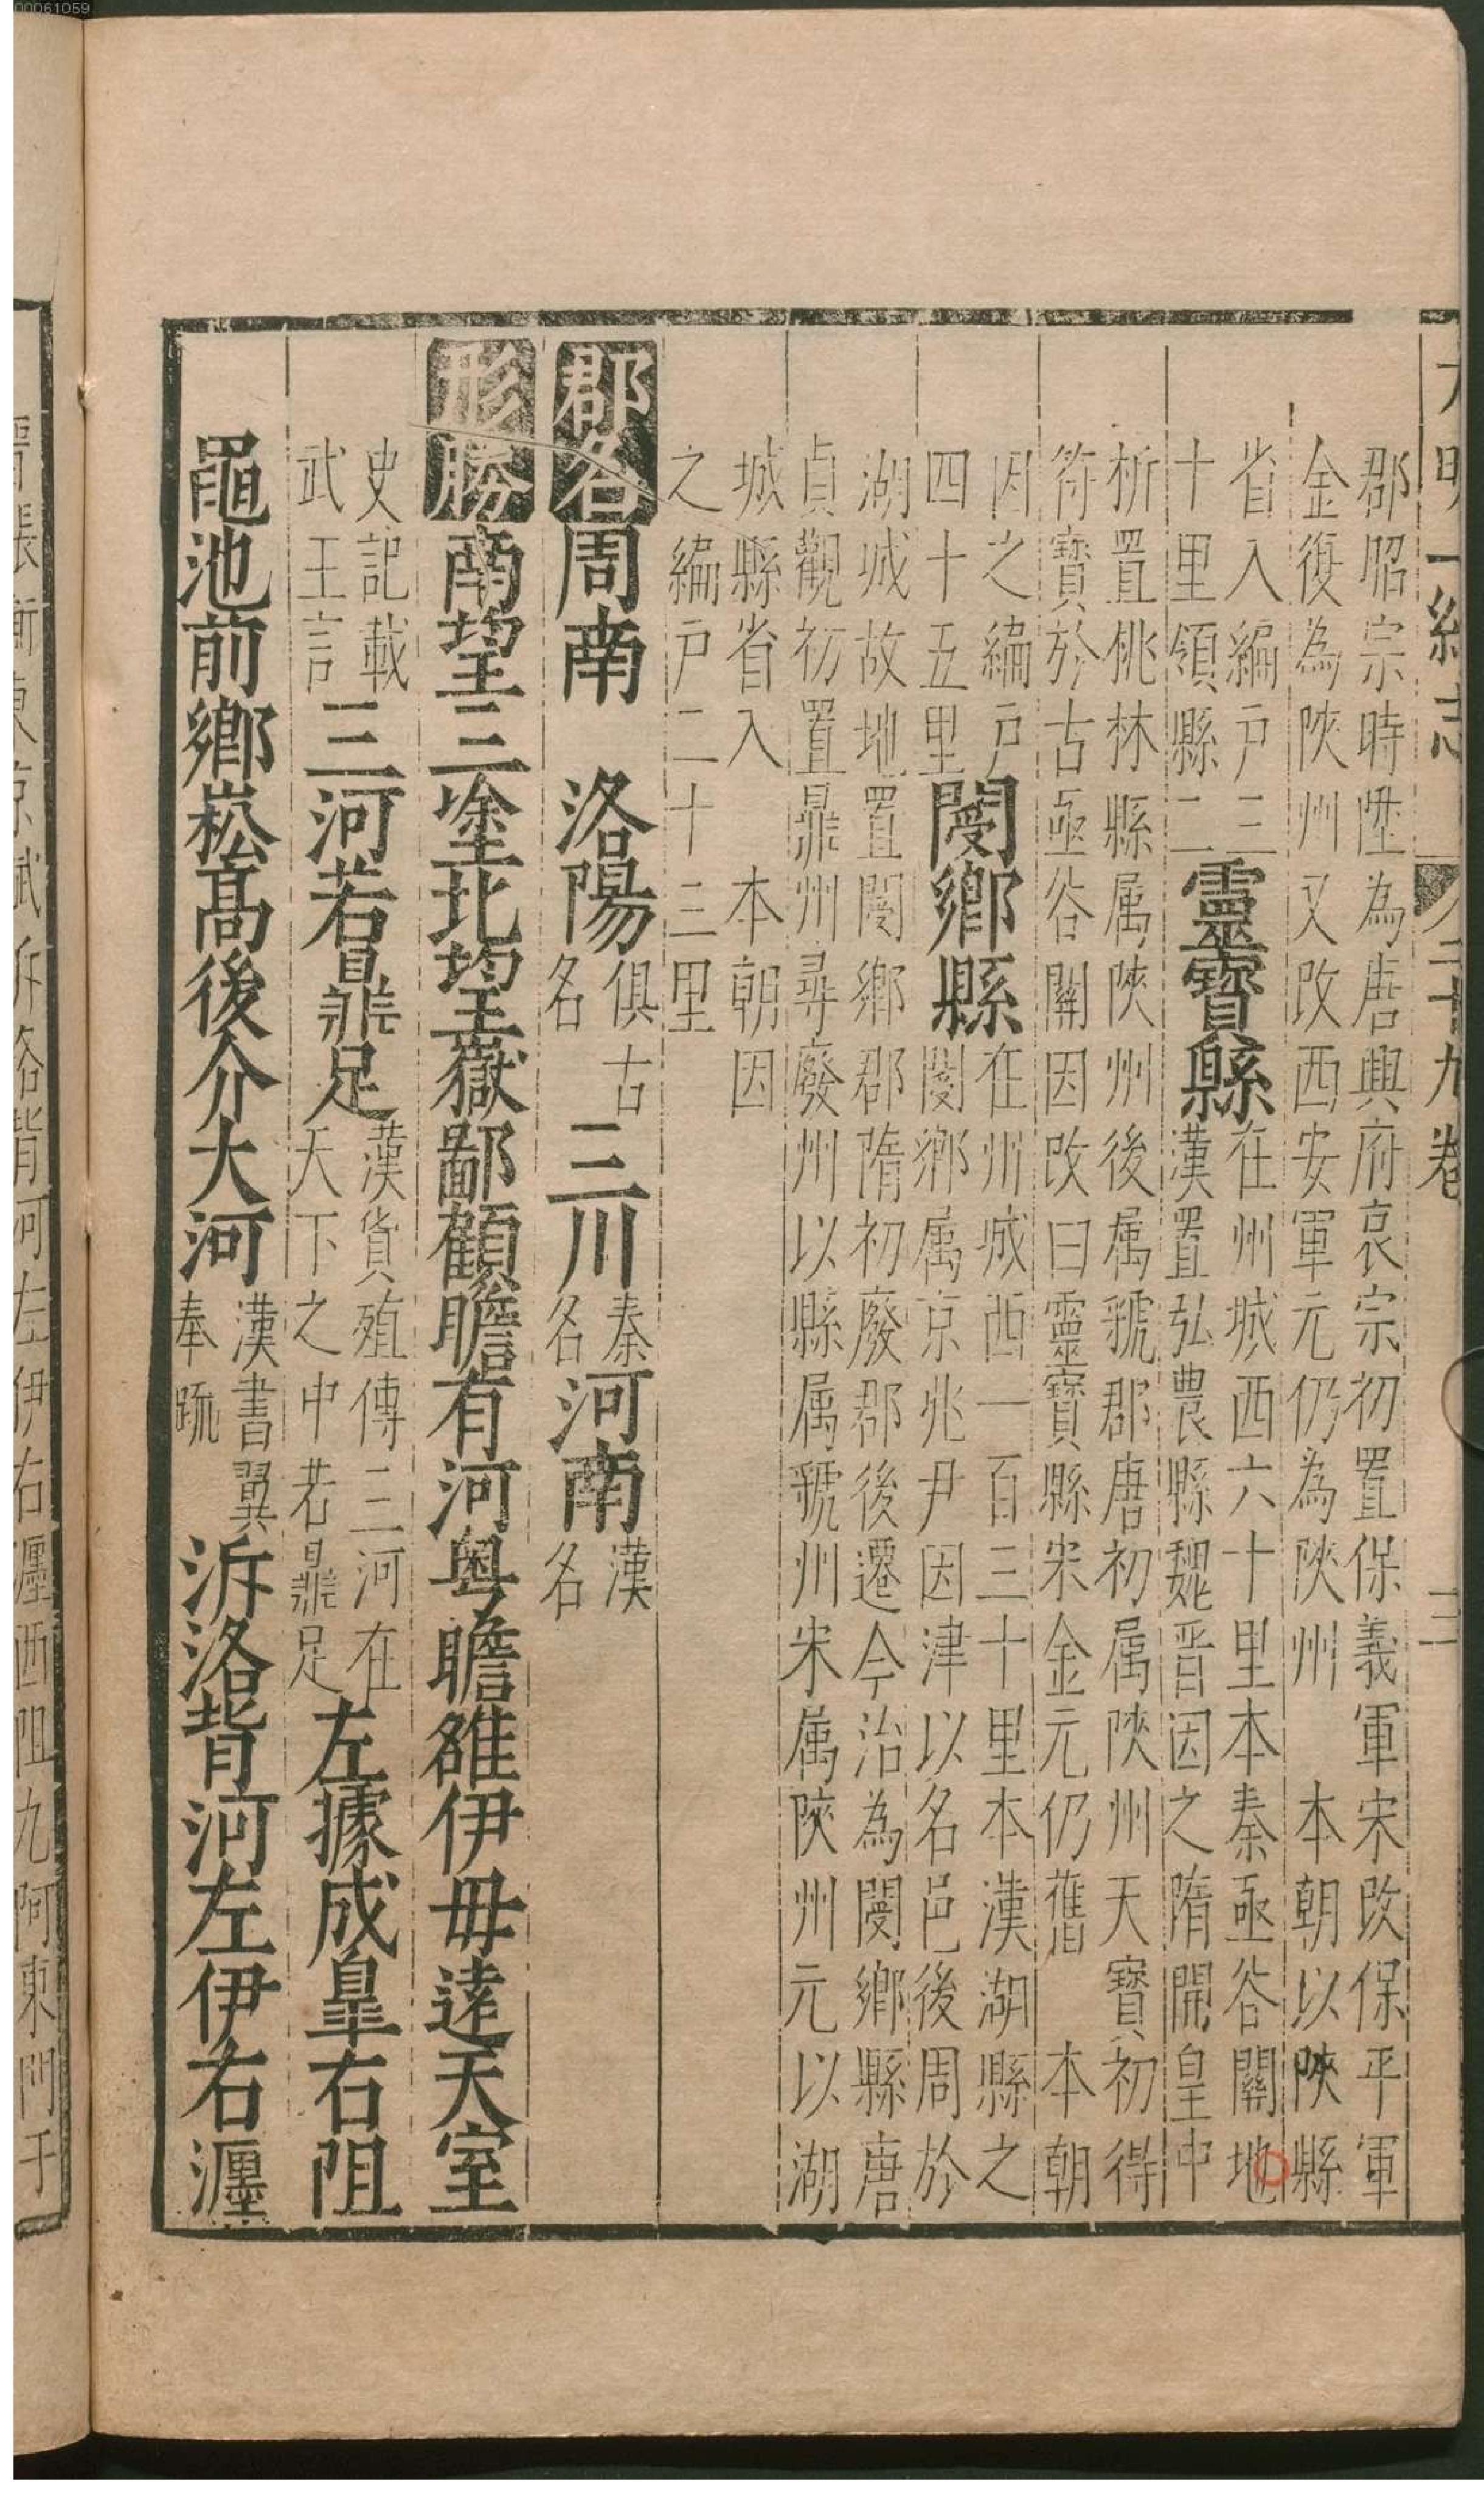 大明一統志 二十九卷 三
郡昭宗時陞為唐興府哀宗初置保義軍宋改保平軍
金復為陜州又改西安軍元仍為陜州 本朝以陜縣
省入編戶三
十里領縣二
靈寶縣
在州城西六十里本秦亟谷關地
漢置弘農縣魏晋因之隋開皇中
析置桃林縣属陜州後属虢郡唐初属陜州天寶初得
符寶於古亟谷關因改曰靈寶縣宋金元仍舊 本朝
因之編戶
四十五里
閿鄉縣
在州城西一百三十里本漢湖縣之
閿鄉属京兆尹因津以名邑後周於
湖城故地置閿鄉郡隋初廢郡後遷今治為閿鄉縣唐
貞觀初置鼎州尋廢州以縣属虢州宋属陜州元以湖
城縣省入 本朝因
之編戶二十三里
郡名 周南 洛陽
俱古
名
三川
秦
名
河南
漢
名
形勝 南望三塗北望嶽鄙顧瞻有河粤瞻雒伊毋逺天室
史記載
武王言
三河若鼎足
漢貨殖傳三河在
天下之中若鼎足
左據成臯右阻
黽池前鄉崧髙後介大河
漢書翼
奉疏
泝洛背河左伊右瀍
張衡東京賦泝洛背河左伊右瀍西阻九阿東門于